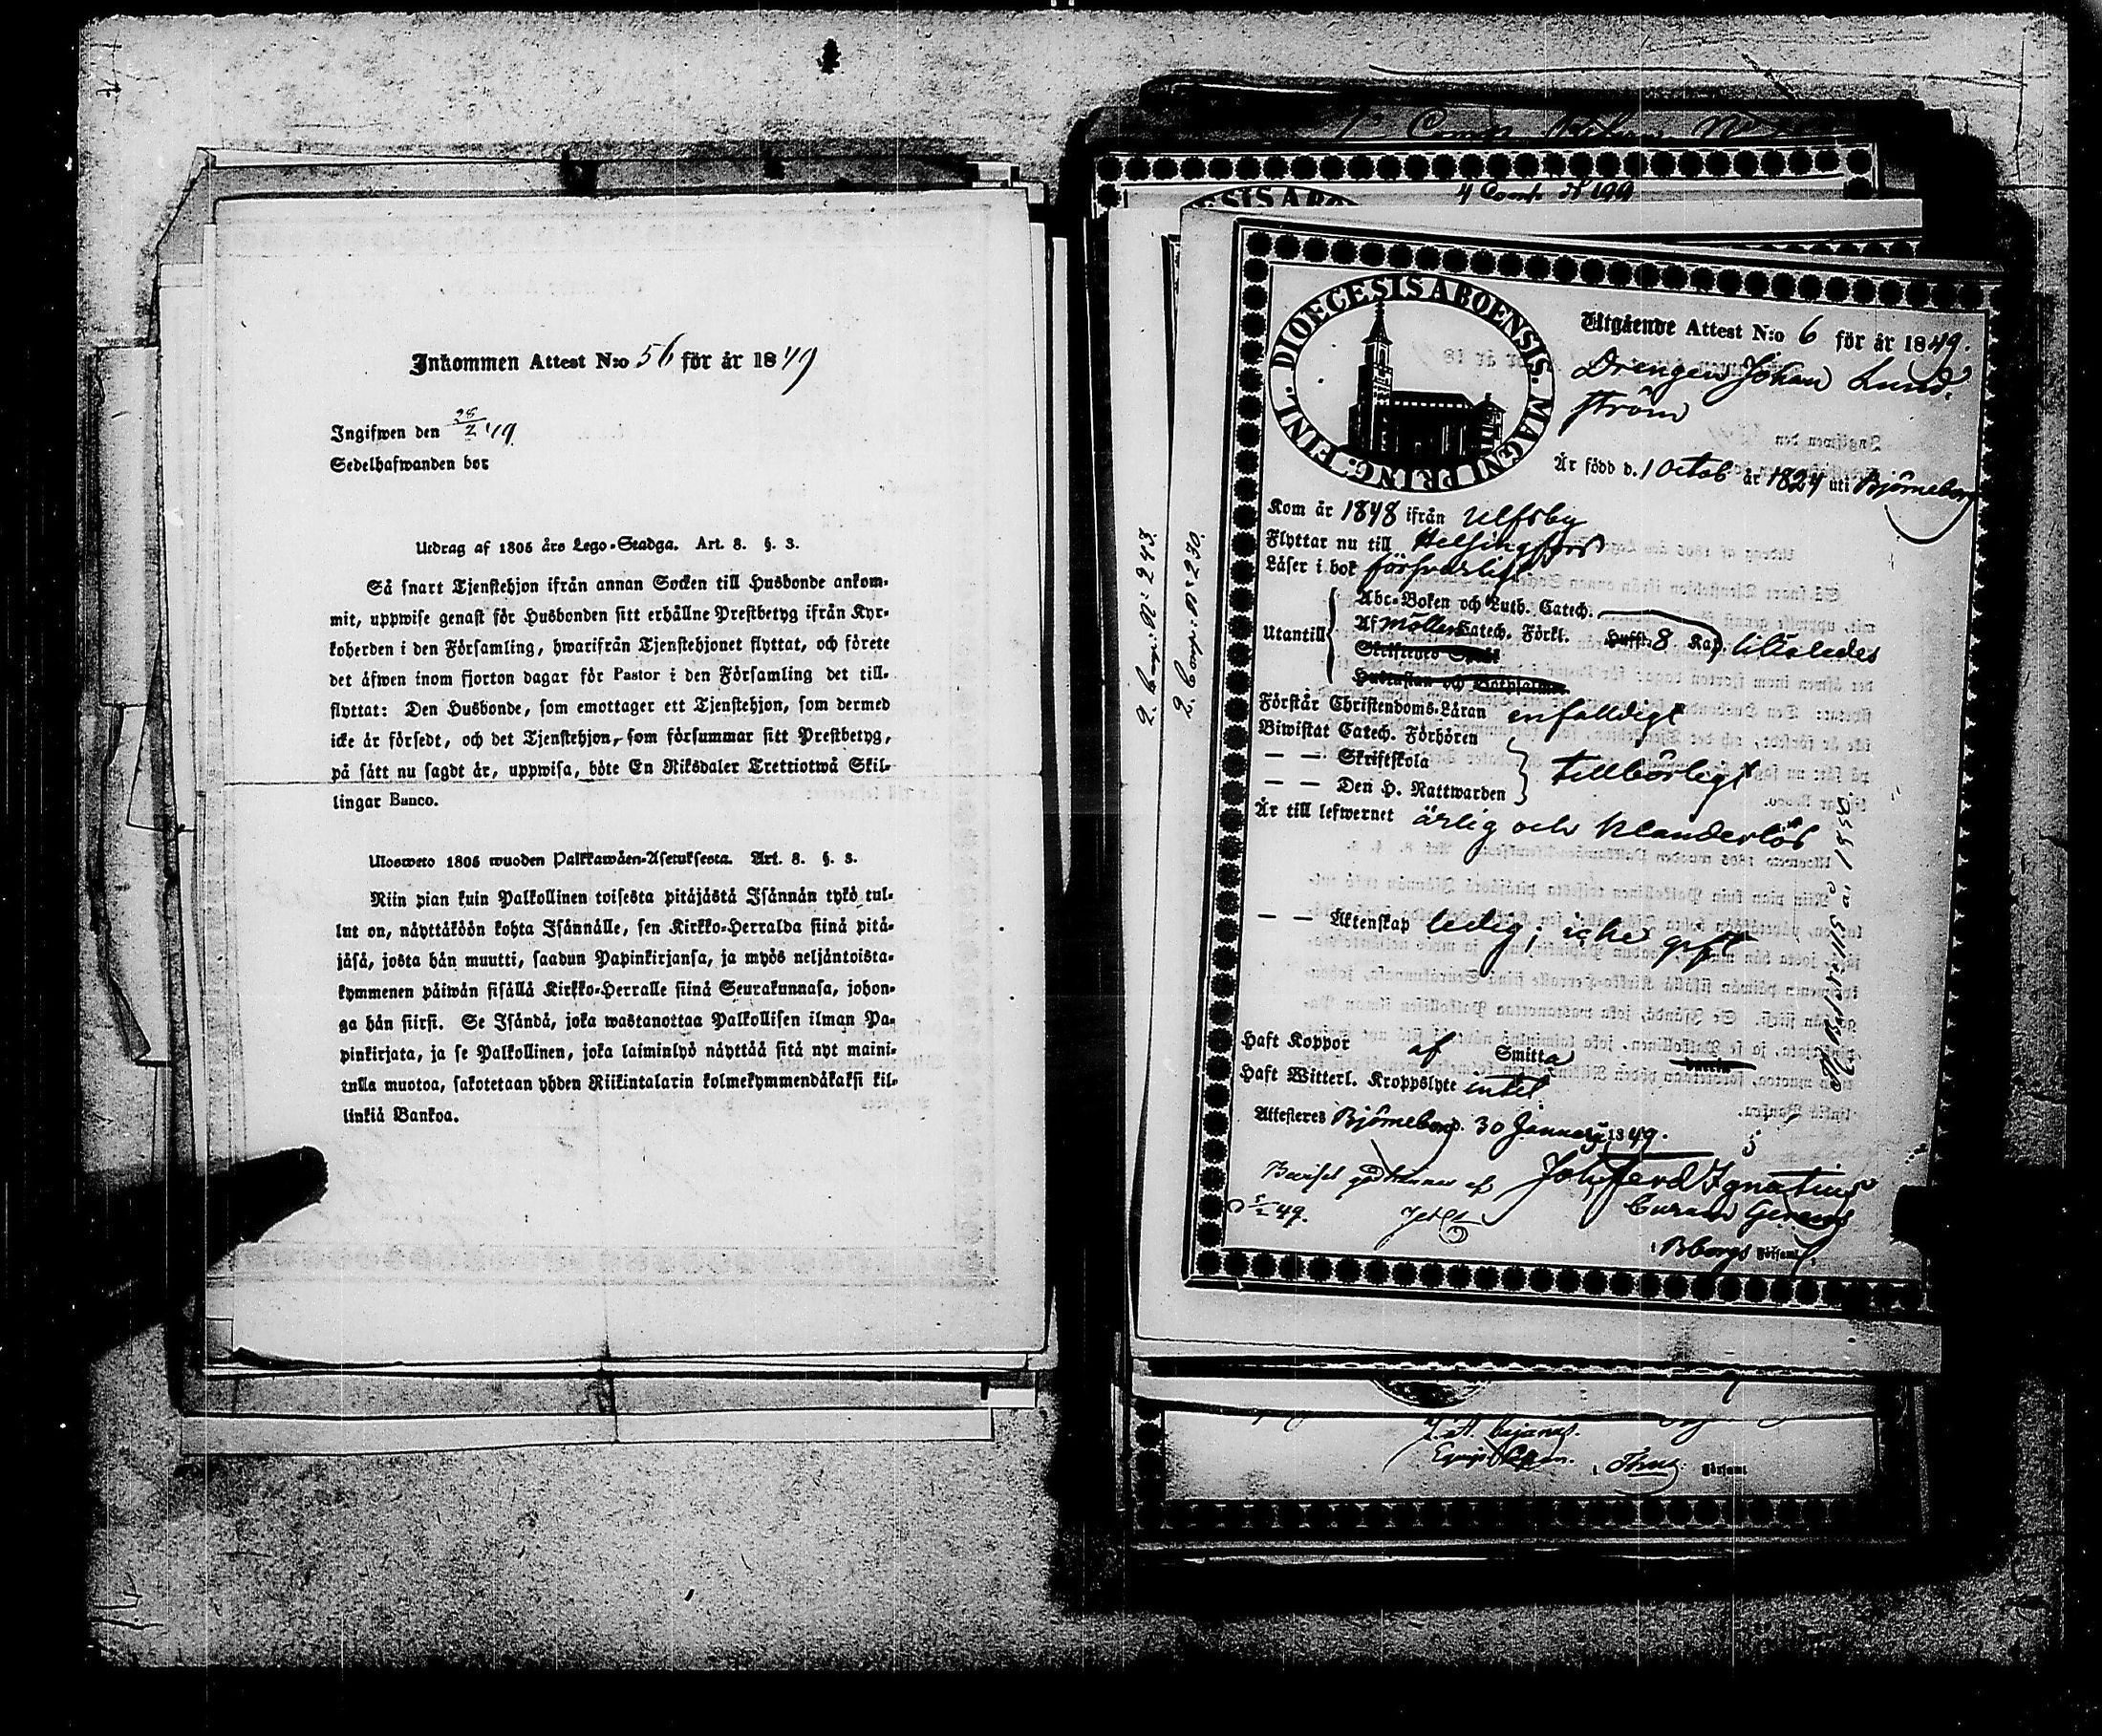 Inkommen Attest N:o 56 för år 1849
Ingifwen den 28/2 49.
Sedelhafwanden bor
Utdrag af 1805 års Lego-Stadga. Art. 8. §. 3.
Så snart Tjenstehjon ifrån annan Socken till Husbonde ankom-
mit, uppwise genast för Husbonden sitt erhållne Prestbetyg ifrån Kyr-
koherden i den Församling, hwarifrån Tjenstehjonet flyttat, och förete
det äfwen inom fjorton dagar för Pastor i den Församling det till-
flyttat: Den Husbonde, som emottager ett Tjenstehjon, som dermed
icke är försedt, och det Tjenstehjon, som försummar sitt Prestbetyg,
på sätt nu sagdt är, uppwisa, böte En Riksdaler Trettiotwå Skil-
lingar Banco.
Ulosweto 1805 wuoden Palkkawäen-Asetuksesta. Art. 8. §. 3.
Niin pian kuin Palkollinen toisesta pitäjästä Isännän tykö tul-
lut on, näyttäköön kohta Isännälle, sen Kirkko-Herralda siinä pitä-
jäsä, josta hän muutti, saadun Papinkirjansa, ja myös neljäntoista-
kymmenen päiwän sisällä Kirkko-Herralle siinä Seurakunnasa, johon-
ga hän siirsi. Se Isändä, joka wastanottaa Palkollisen ilman Pa-
pinkirjata, ja se Palkollinen, joka laiminlyö näyttää sitä nyt maini-
tulla muotoa, sakotetaan yhden Riikintalarin kolmekymmendäkaksi kil-
linkiä Bankoa.
4 Comp. N 199
DIOECESIS ABOENSIS. MAGNI PRINC. FINL.
Utgående Attest N:o 6 för år 1849.
Drengen Johan Lund-
ström
Är född d. 1 Octob år 1824 uti Björneborg
Kom år 1848 ifrån Ulfsby
Flyttar nu till Helsingfors
Läser i bok försvarligt
Utantill
Abc-Boken och Luth. Catech.
Af Möllers Catech. Förkl. 8 Kap. liksledes
Förstår Christendoms-Läran enfalldigt
Biwistat Catech. Förhören
— — Skriftskola
— — Den H. Nattwarden
tillbörligt
Är till lefwernet ärlig och klanderlös
— — Äktenskap ledig; icke gift
Haft Koppor af Smitta
Haft Witterl. Kroppslyte intet
Attesteres Björneborg d. 30 Januarii 1849.
Joh. Ferd Ignatius
Curam Gerens
i Bborgs Församl.
Beviset godkännes af
5/2 49.
2. Comp: N: 243.
2. Comp: N: 230.
i Församl